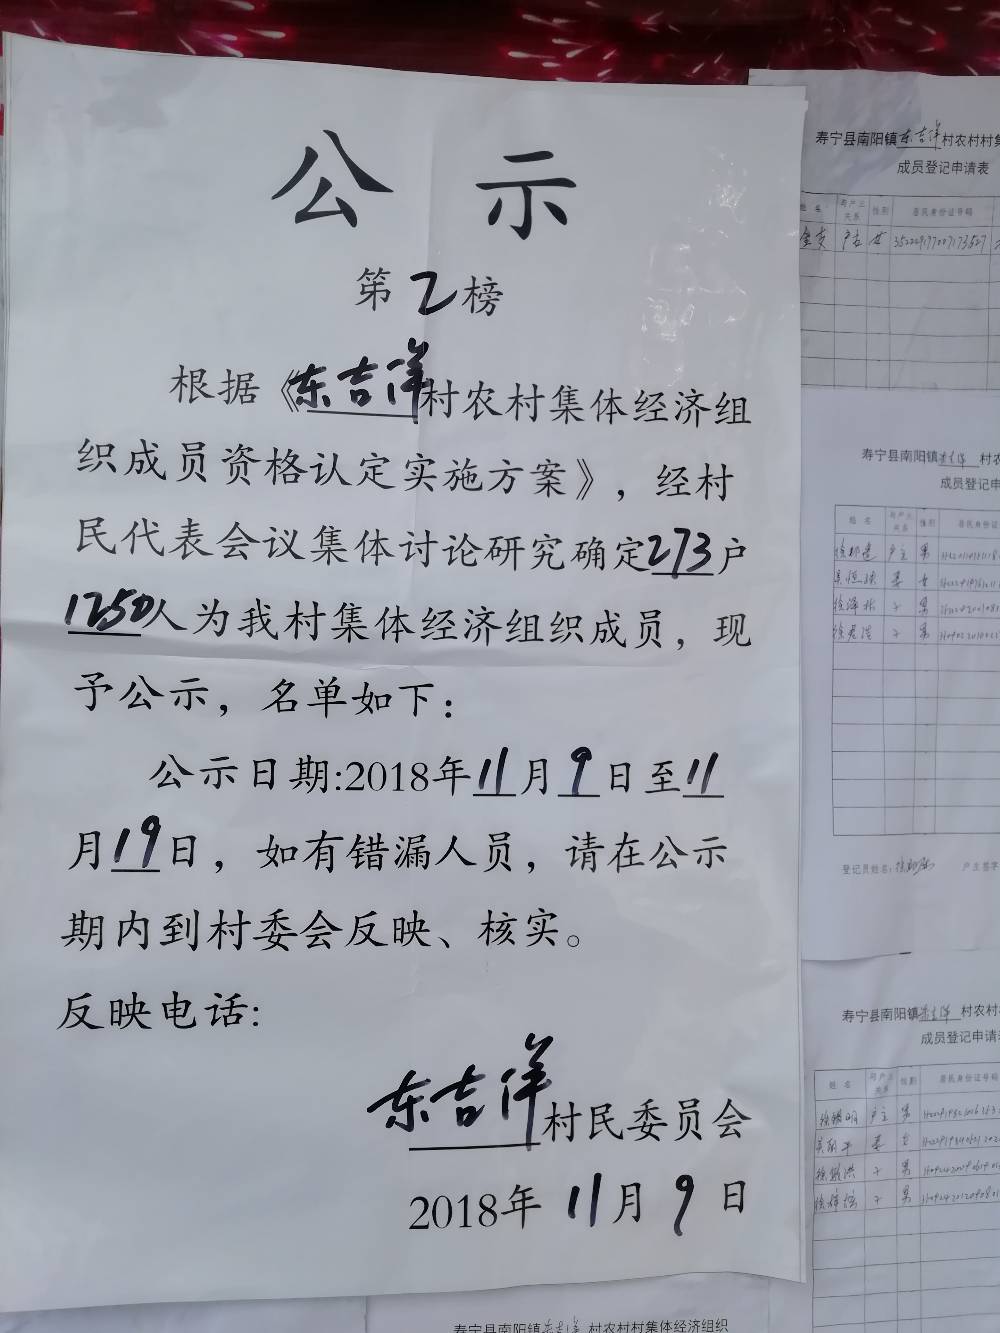 公示
第2榜
根据《东吉洋村农村集体经济组
织成员资格认定实施方案》，经村
民代表会议集体讨论研究确定273户
1250人为我村集体经济组织成员，现
予公示，名单如下：
公示日期:2018年11月9日至11
月19日，如有错漏人员，请在公示
期内到村委会反映、核实。
反映电话:
东吉洋村民委员会
2018年11月9日
寿宁县南阳镇东吉洋村农村村集
成员登记申请表
姓名 与户主关系 性别 居民身份证号码
户主 女
寿宁县南阳镇东吉洋村农
成员登记申
姓名 与户主关系 性别 居民身份证
户主 男
妻 女
子 男
子 男
登记员姓名: 户主签字
寿宁县南阳镇东吉洋村农村
成员登记申请
姓名 与户主关系 性别 居民身份证号码
户主 男
妻 女
子 男
子 男
寿宁县南阳镇东吉洋村农村村集体经济组织